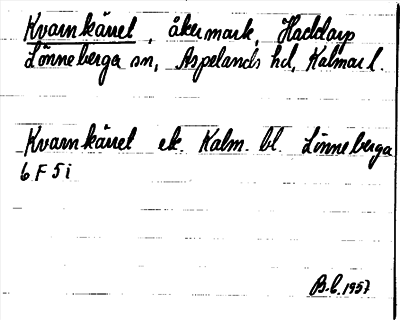 Kvarnkärret, åkermark, Haddarp
Lönneberga sn, Aspelands hd, Kalmar l.
Kvarnkärret ek. Kalm. bl. Lönneberga
6 F 5 i
B.C. 1957